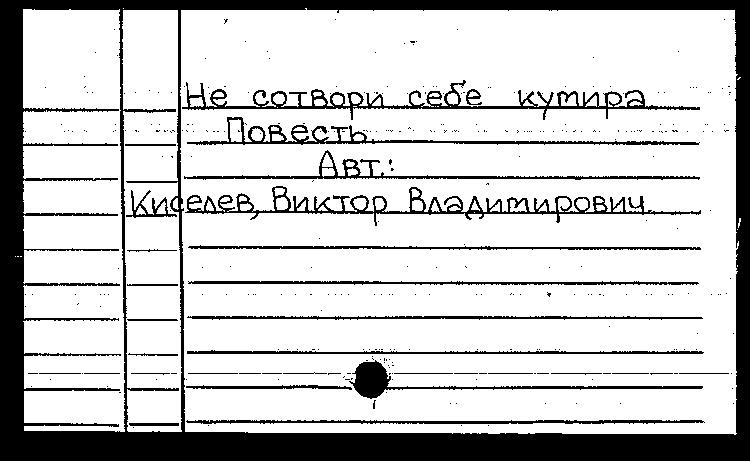 Не сотвори себе кумира.
Повесть.
Авт.:
Киселев, Виктор Владимирович.